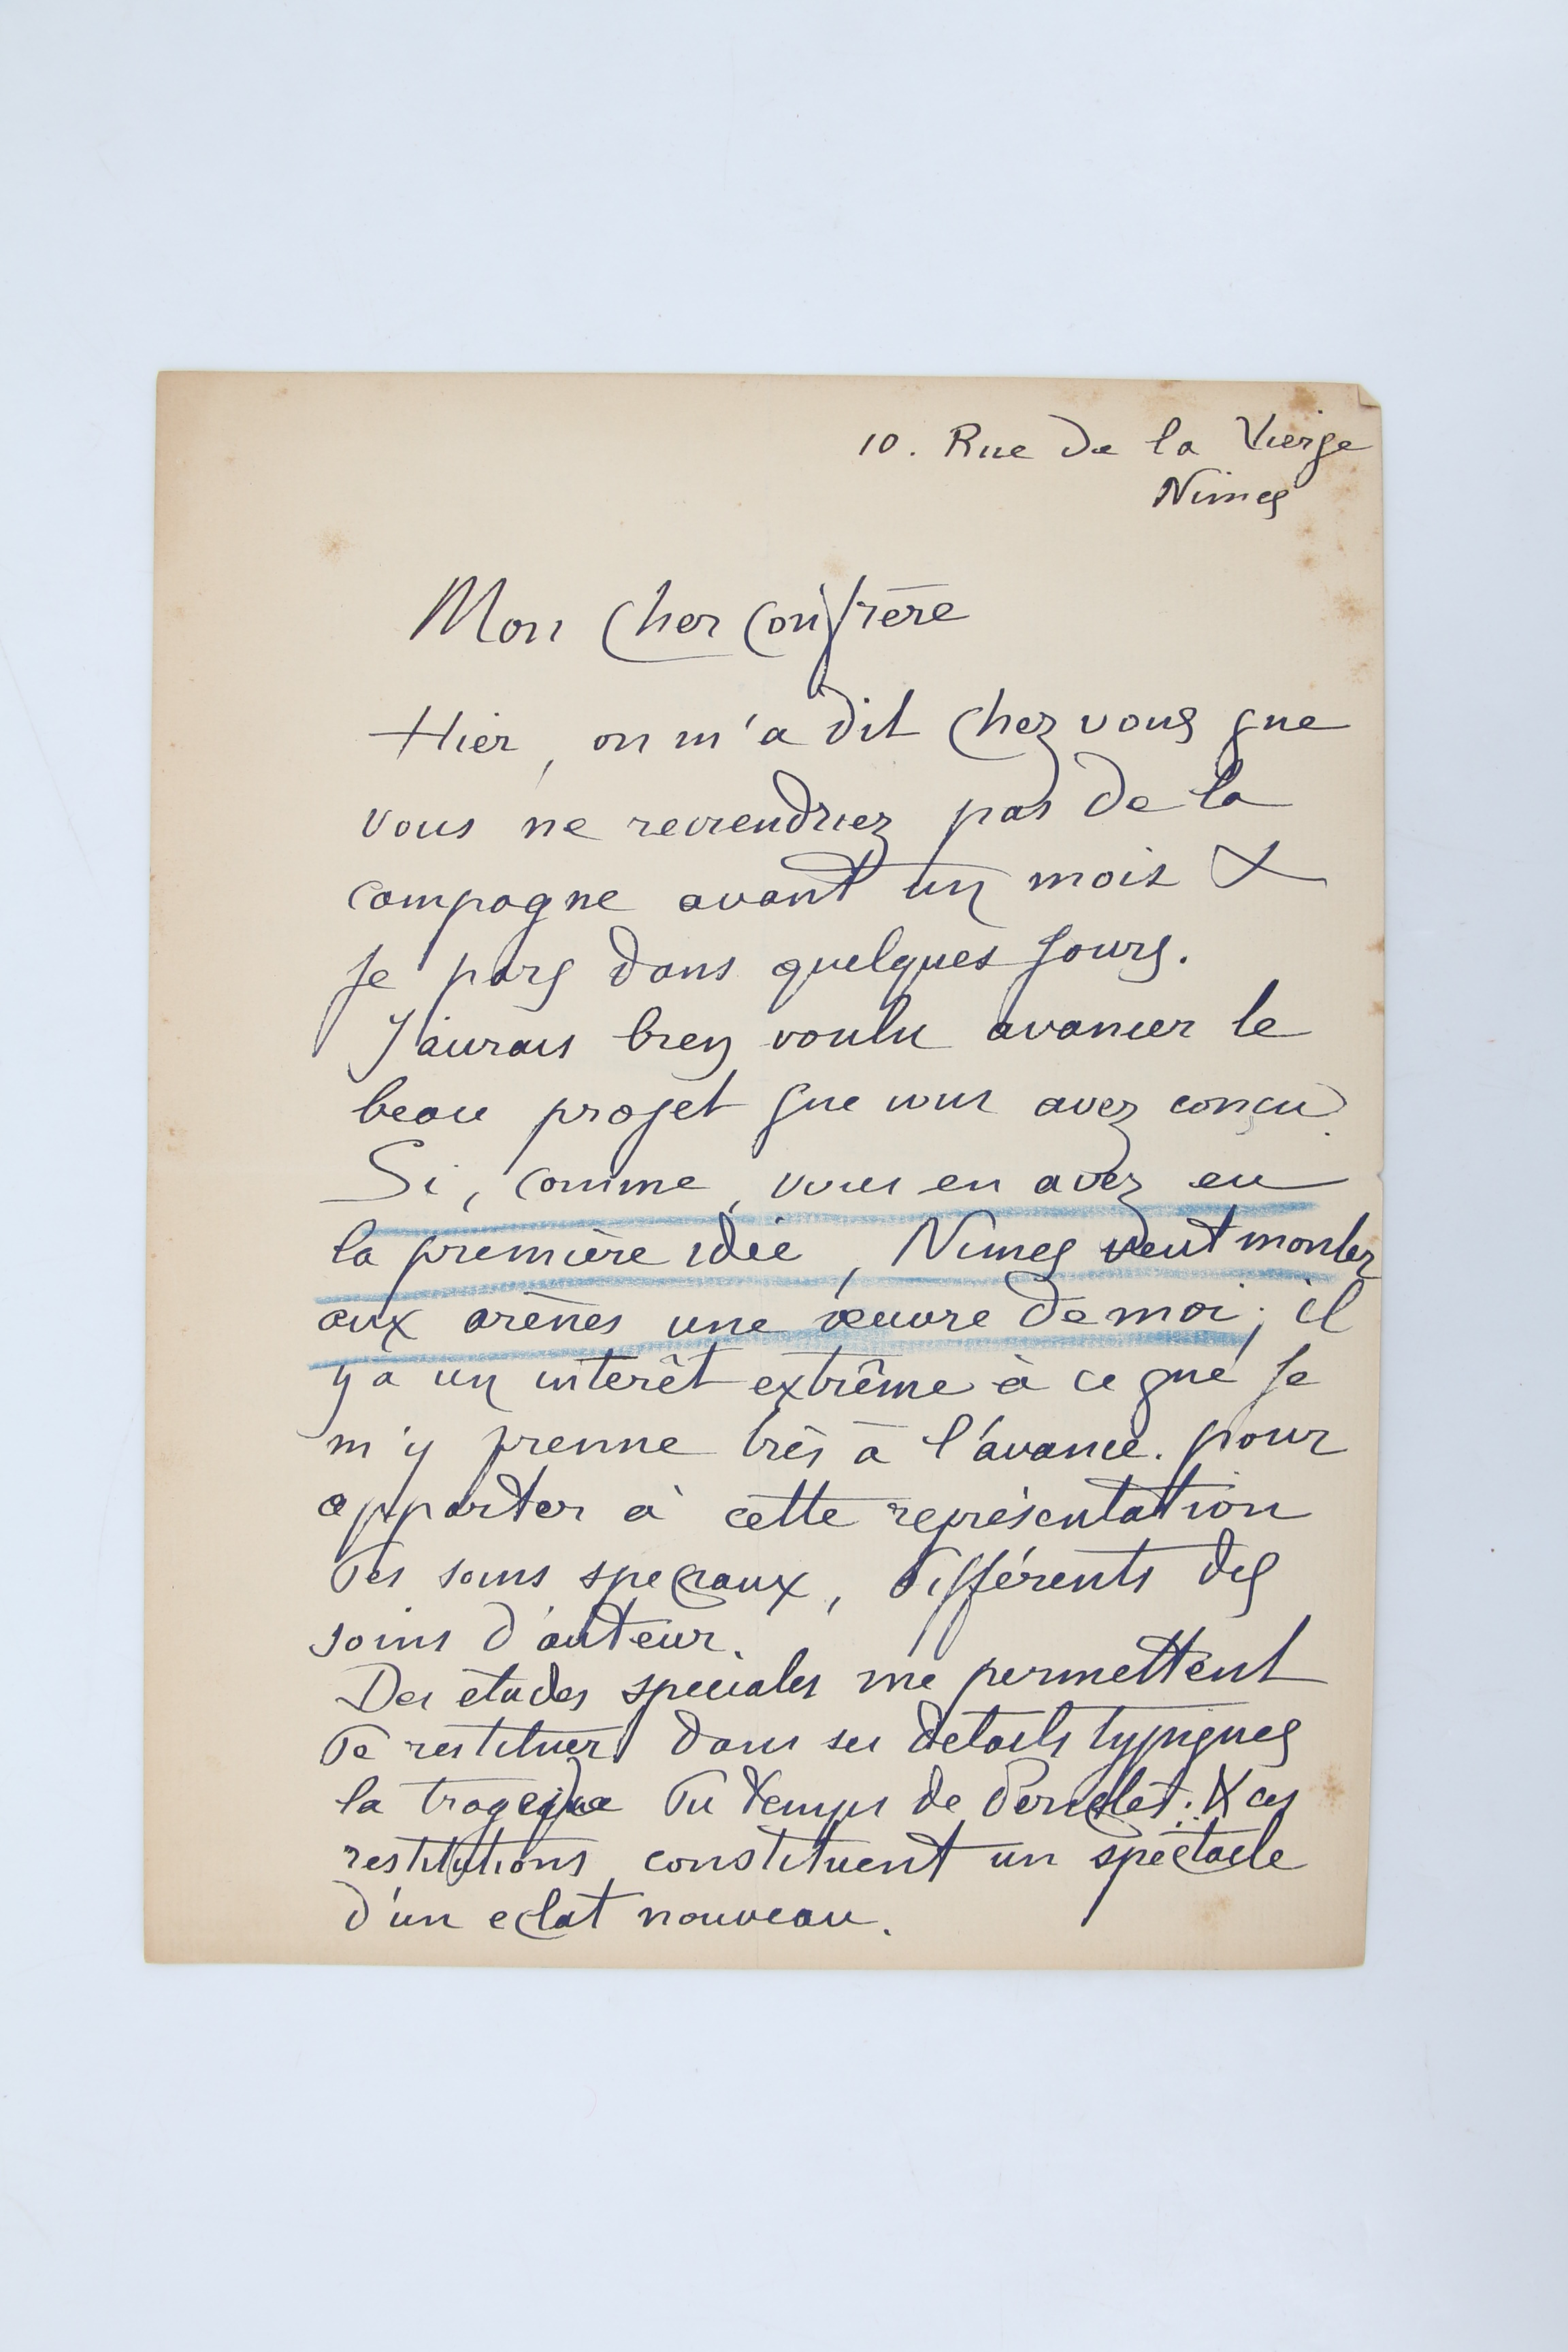 10. Rue de la Vierge
Nimes
Mon cher confrère
Hier, on m'a dit chez vous que
vous ne reviendriez pas de la
campagne avant un mois &
je pars dans quelques jours.
J'aurais bien voulu avancer le
beau projet que vous avez conçu.
Si, comme, vous en avez eu
la première idée, Nimes veut monter
aux arènes une œuvre de moi; il
y a un intérêt extrême à ce que je
m'y prenne très à l'avance. pour
apporter à cette représentation
des soins speciaux, différents des
soins d'auteur.
Des études spéciales me permettent
de restituer dans ses détails typiques
la tragedie du temps de Periclès. & ces
restitutions constituent un spectacle
d'un eclat nouveau.